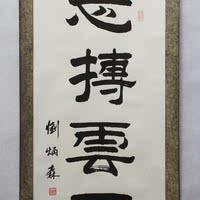 搏
雲
劉炳森